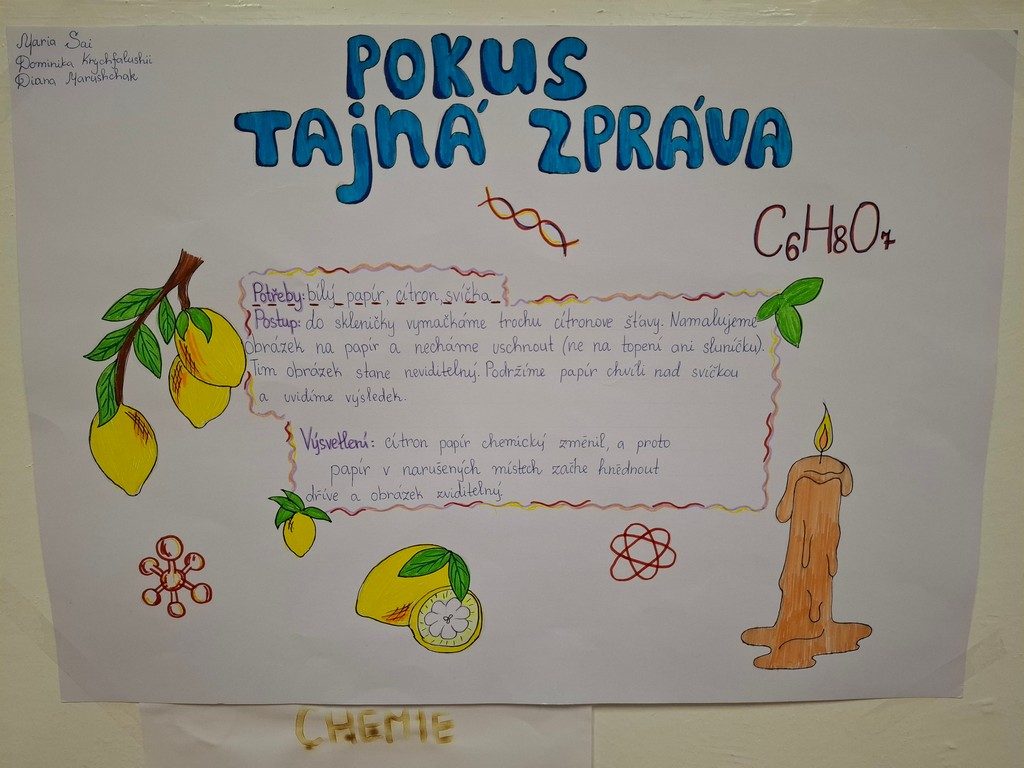 Maria Sai
Dominika Krychfalushii
Diana Marushchak
POKUS
TAJNÁ ZPRÁVA
C6H8O7
Potřeby: bílý papír, citron, svíčka
Postup: do skleničky vymačkáme trochu citronove šťavy. Namalujeme
obrázek na papír a necháme uschnout (ne na topení ani sluníčku).
Tím obrázek stane neviditelný. Podržíme papír chvíli nad svíčkou
a uvidíme výsledek.
Výsvetlení: citron papír chemický změnil, a proto
papír v narušených místech začne hnědnout
dříve a obrázek zviditelný
CHEMIE